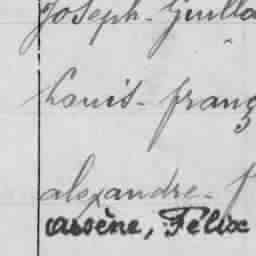 Joseph-Guilla
Louis-franç
alexandre-f
arsène, Félix